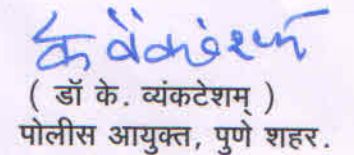 के वेंकटेशम
( डॉ के. व्यंकटेशम् )
पोलीस आयुक्त, पुणे शहर.